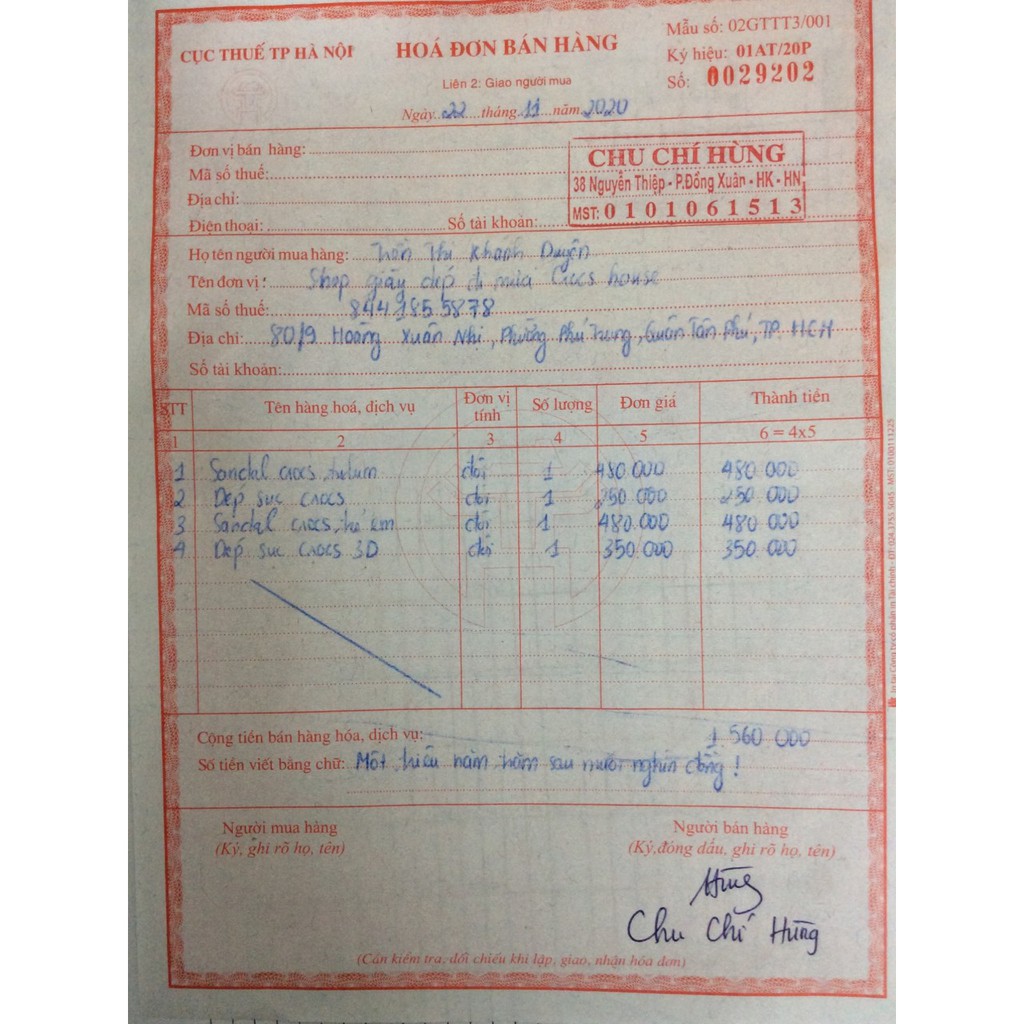 CỤC THUẾ TP HÀ NỘI
HOÁ ĐƠN BÁN HÀNG
Mẫu số: 02GTTT3/001
Ký hiệu: 01AT/20P
Liên 2: Giao người mua
Số: 0029202
Ngày 22 tháng 11 năm 2020
Đơn vị bán hàng:
CHU CHÍ HÙNG
Mã số thuế:
38 Nguyễn Thiệp - P.Đồng Xuân - HK - HN
Địa chỉ:
MST: 0101061513
Điện thoại: Số tài khoản:
Họ tên người mua hàng: Trần Thị Khánh Duyên
Tên đơn vị: Shop giầy dép đi mưa Crocs house
Mã số thuế: 8441855878
Địa chỉ: 80/9 Hoàng Xuân Nhị, Phường Phú Trung, Quận Tân Phú, TP. HCM
Số tài khoản:
STT Tên hàng hoá, dịch vụ Đơn vị tính Số lượng Đơn giá Thành tiền
1 2 3 4 5 6 = 4x5
1 Sandal crocs đôi 1 480.000 480 000
2 Dép sục crocs đôi 1 250 000 250 000
3 Sandal crocs đôi 1 480.000 480 000
4 Dép sục crocs 3D đôi 1 350.000 350.000
Cộng tiền bán hàng hóa, dịch vụ: 1.560 000
Số tiền viết bằng chữ: Một triệu năm trăm sáu mươi nghìn đồng!
Người mua hàng
(Ký, ghi rõ họ, tên)
Người bán hàng
(Ký,đóng dấu, ghi rõ họ, tên)
Hùng
Chu Chí Hùng
(Cần kiểm tra, đối chiếu khi lập, giao, nhận hóa đơn)
In tại Công ty cổ phần in Tài chính - ĐT: 024.3755 5045 - MST: 0100111225